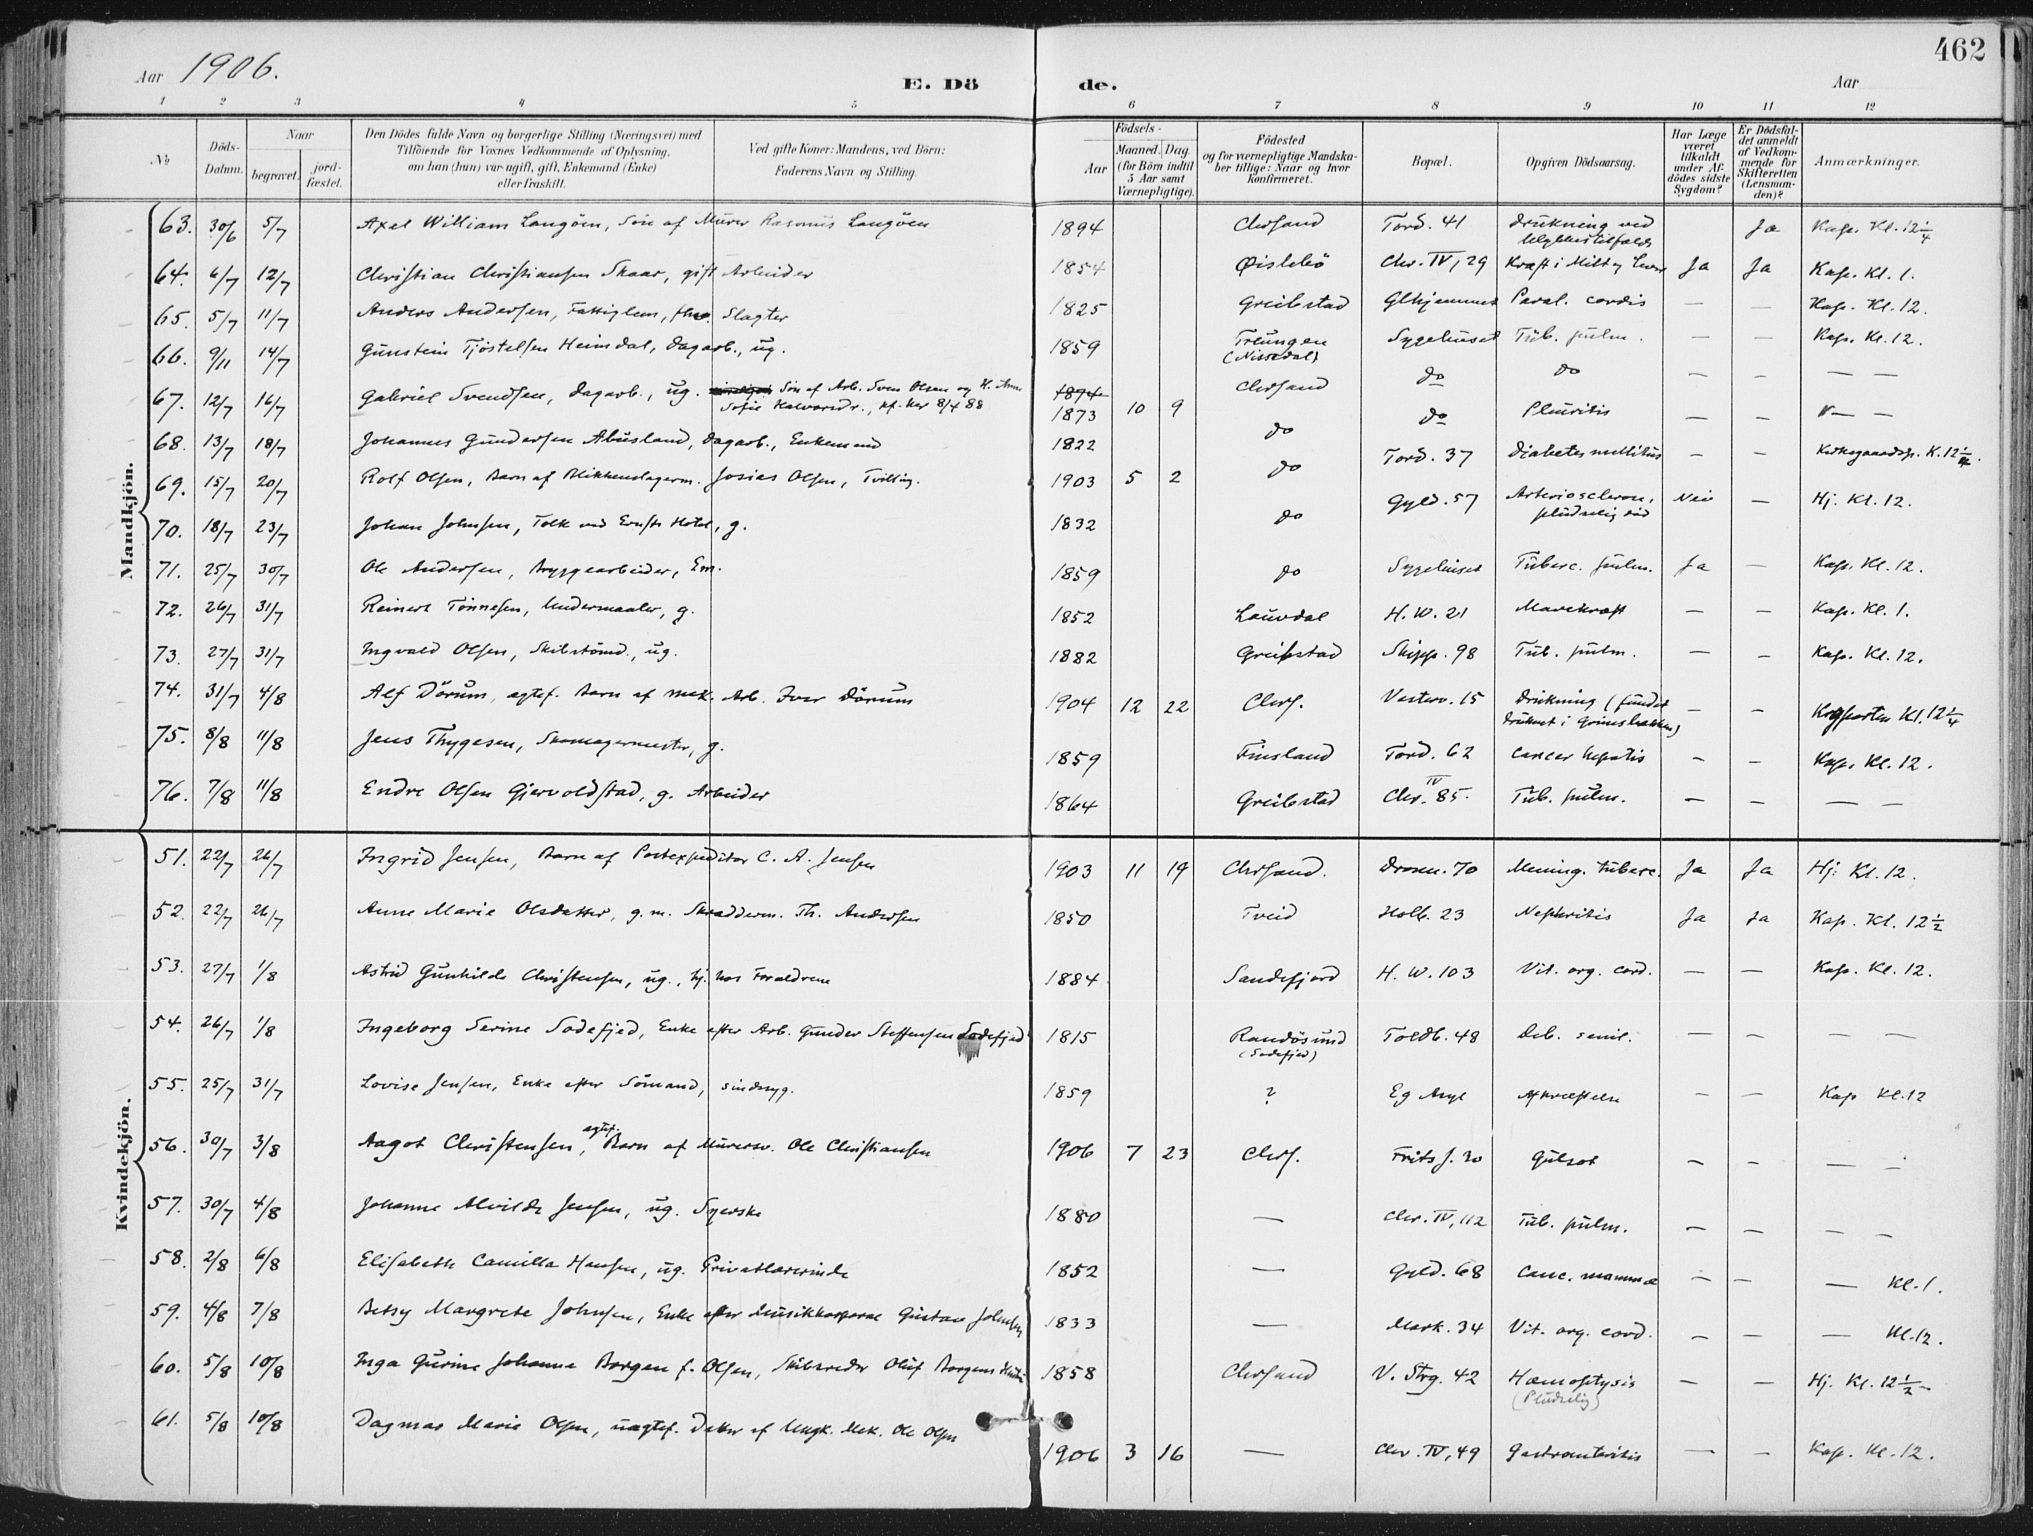 462
Aar 1906.
E. Dö de.
Aar
1 2 3 4 5 6 7 8 9 10 11 12
No
Döds-Datum.
Naar
begravet.
jord-fæstet.
Den Dödes fulde Navn og borgerlige Stilling (Næringsvei) med
Tilföiende for Voxnes Vedkommende af Oplysning,
om han (hun) var ugift, gift, Enkemand (Enke)
eller fraskilt.
Ved gifte Koner: Mandens, ved Börn:
Faderens Navn og Stilling.
Födsels-
Aar
Maaned. Dag
(for Börn indtil
5 Aar samt
Værnepligtige).
Födested
og for værnepligtige Mandska-
ber tillige: Naar og hvor
konfirmeret.
Bopæl.
Opgiven Dödsaarsag.
Har Læge
været
tilkaldt
under Af-
dödes sidste
Sygdom?
Er Dödsfal-
det anmeldt
af Vedkom-
mende for
Skifteretten
(Lensman-
den)?
Anmærkninger.
Mandkjön.
63. 30/6 5/7 Axel William Langöen, Sön af Murer Rasmus Langöen 1894 Chrsand Tord. 41 Drukning ved Ja Kap. Kl. 12 1/4
64. 6/7 12/7 Christian Christiansen Skaar, gift Arbeider 1854 Øislebö Chr. IV, 29 Kræft i Milt og Lever Ja Ja Kap. Kl. 1.
65. 5/7 11/7 Anders Andersen, Fattiglem, fhv. Slagter 1825 Greibstad Glhjemmet Paral. cordis — — Kap. Kl. 12.
66. 9/11 14/7 Gunstein Tjöstelsen Heimdal, dagarb., ug. 1859 Treungen (Nissedal) Sygehuset Tub. pulm. — — Kap. Kl. 12.
67. 12/7 16/7 Gabriel Svendsen, dagarb., ug. Sön af Arb. Sven Olsen og H. Anne
Sofie Halvorsdr., kf. her 8/4 88 1874 1873 10 9 Chrsand do do — — — —
68. 13/7 18/7 Johannes Gundersen Abusland, dagarb., Enkemand 1822 do do Pleuritis — — — —
69. 15/7 20/7 Rolf Olsen, Barn af Blikkenslagerm. Josias Olsen, Tvilling. 1903 5 2 do Tord. 37 Diabetes mellitus — — Kirkegaardsp. K. 12 1/4.
70. 18/7 23/7 Johan Johnsen, Tolk ved Ernsts Hotel, g. 1832 do Gyld. 57 Arteriosclerose, pludselig död Nei — Hj. Kl. 12.
71. 25/7 30/7 Ole Andersen, Bryggearbeider, Em. 1859 do Sygehuset Tuberc. pulm. Ja — Kap. Kl. 12.
72. 26/7 31/7 Reinert Tönnesen, Undermaaler, g. 1852 Lauvdal H. W. 21 Mavekræft — — Kap. Kl. 1.
73. 27/7 31/7 Ingvald Olsen, Skibstömd., ug. 1882 Greibstad Skipp. 98 Tub. pulm. — — Kap. Kl. 12.
74. 31/7 4/8 Alf Dörum, ægtef. Barn af mek. Arb. Iver Dörum 1904 12 22 Chrs. Vesterv. 15 Drukning (fundet
druknet i Grimsbækken) — — Kl. 12 1/4
75. 8/8 11/8 Jens Thygesen, Skomagermester, g. 1859 Finsland Tord. 62 Cancer hepatis — — Kap. Kl. 12.
76. 7/8 11/8 Endre Olsen Gjervoldstad, g. Arbeider 1864 Greibstad Chr. IV 85. Tub. pulm. — — — —
Kvindekjön.
51. 22/7 26/7 Ingrid Jensen, Barn af Postexpeditor C. A. Jensen 1903 11 19 Chrsand. Dronn. 70 Mening. tuberc. Ja Ja Hj. Kl. 12.
52. 22/7 26/7 Anne Marie Olsdatter, g. m. Skrædderm. Th. Andersen 1850 Tveid Holb. 23 Nephritis Ja Ja Kap. Kl. 12 1/2
53. 27/7 1/8 Astrid Gunhilde Christensen, ug., hj. hos Forældrene 1884 Sandefjord H. W. 103 Vit. org. cord. — — Kap. Kl. 12.
54. 26/7 1/8 Ingeborg Serine Sodefjed, Enke efter Arb. Gunder Steffensen Sodefjed 1815 Randösund (Sodefjed) Toldb. 48 Deb. senil. — — — —
55. 25/7 31/7 Lovise Jensen, Enke efter Sömand, sindssyg. 1859 ? Eg Asyl Afkræftelse — — Kap Kl. 12
56. 30/7 3/8 Aagot Christensen, ægtef. Barn af Murersv. Ole Christiansen 1906 7 23 Chrs. Frits J. 20 Gulsot — — — —
57. 30/7 4/8 Johanne Alvilde Jensen, ug. Syerske 1880 — Chr. IV, 112 Tub. pulm. — — — —
58. 2/8 6/8 Elisabeth Camilla Hansen, ug. Privatlærerinde 1852 — Gyld. 68 Canc. mammæ — — — Kl. 1.
59. 4/8 7/8 Betsy Margrete Johnsen, Enke efter Gustav Johnsen 1833 — Mark. 34 Vit. org. cord. — — — Kl. 12.
60. 5/8 10/8 Inga Gurine Johanne Borgen f. Olsen, Skibsreder Oluf Borgens Hustru 1858 Chrsand V. Strg. 42 Hæmoptysis (Pludselig) — — Hj. Kl. 12 1/2
61. 5/8 10/8 Dagmar Marie Olsen, uægtef. Datter af Ungk. Mek. Ole Olsen 1906 3 16 — Chr. IV, 49 Gastroenteritis — — Kap. Kl. 12.